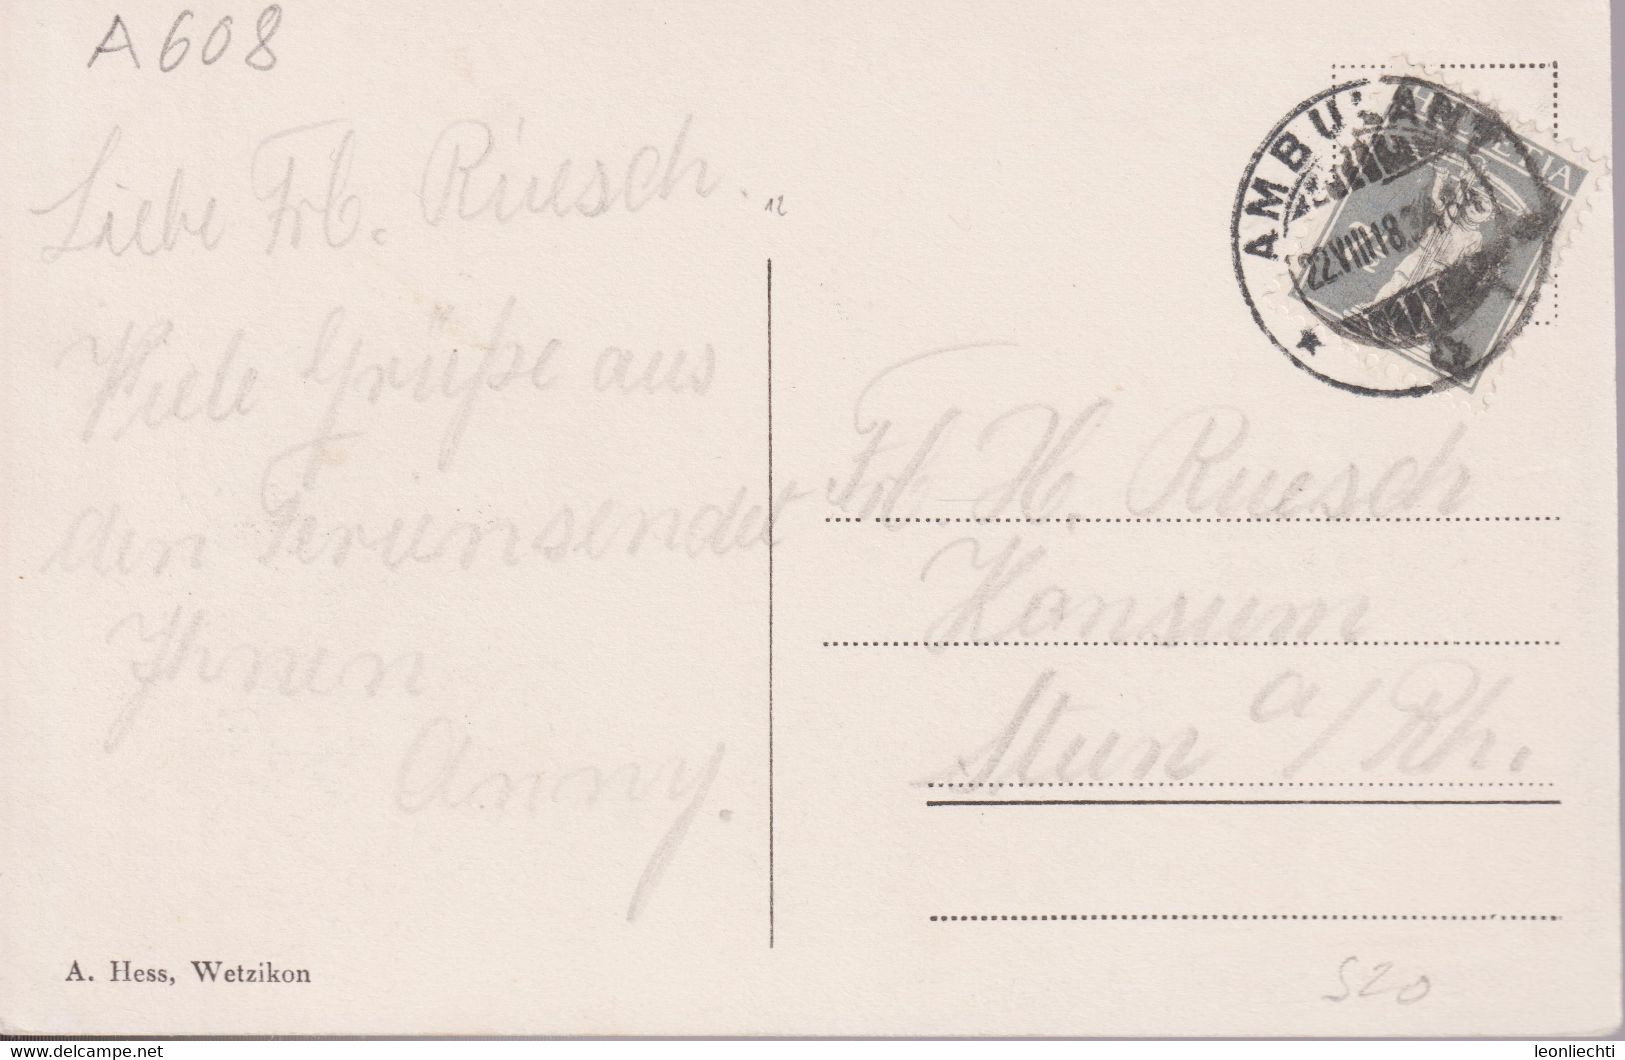 A 608
Liebe Frl. Ruesch.
12
Viele Grüße aus
den Ferien sendet
Ihnen
Anny.
A. Hess, Wetzikon
AMBULANT
HELVETIA
22.VIII
Frl. H. Ruesch
Konsum
Stein a/Rh.
520
www.delcampe.net
leonliechti